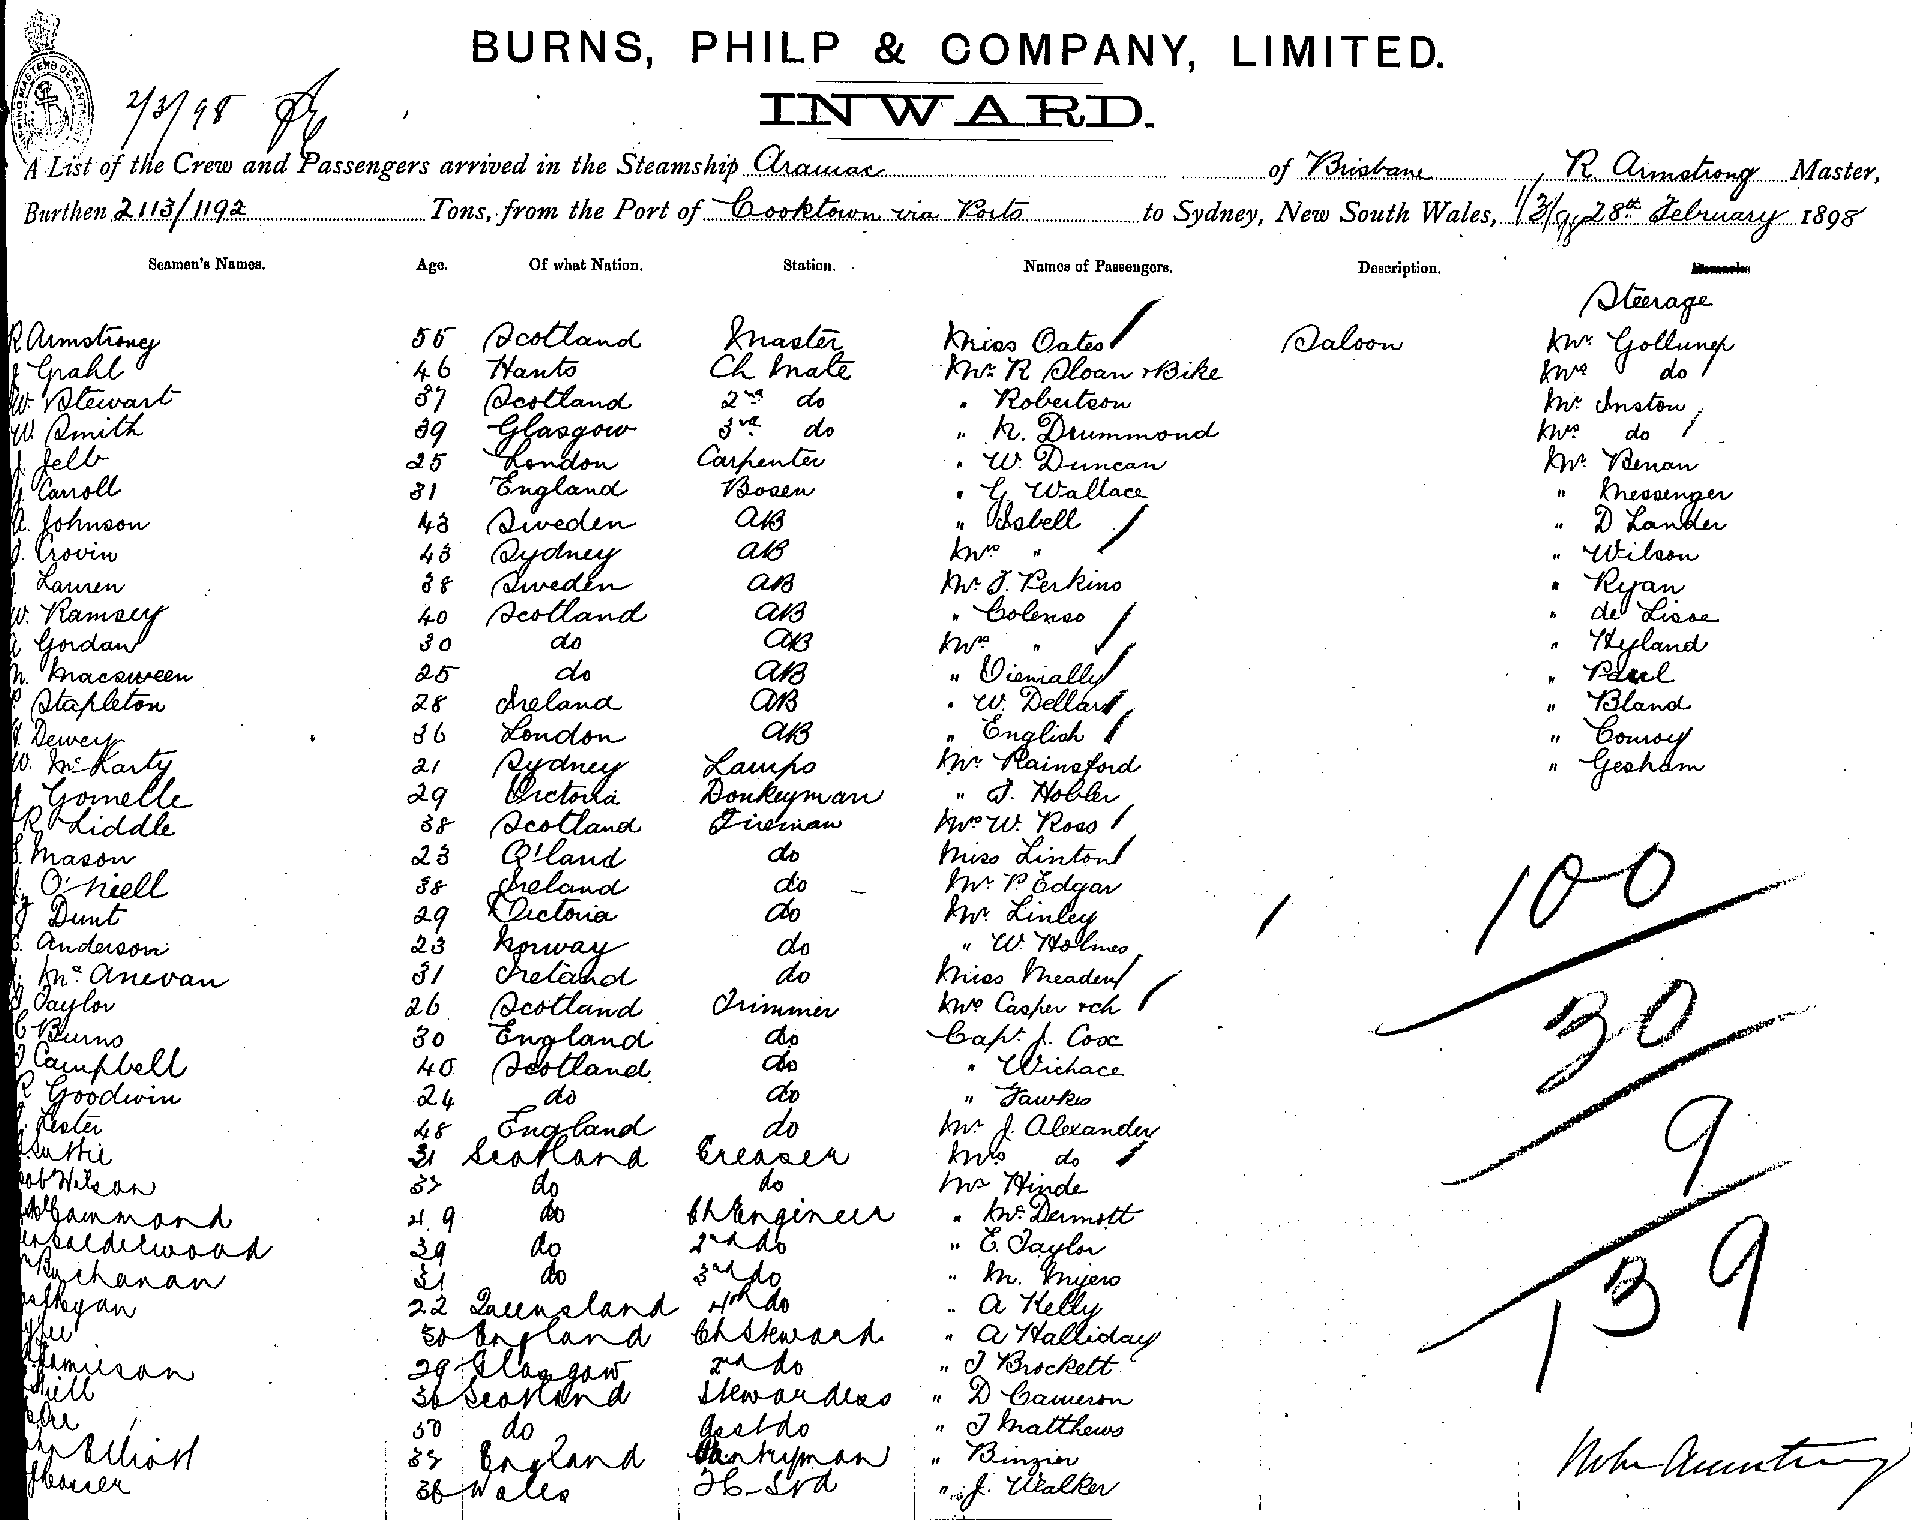 BURNS, PHILP & COMPANY, LIMITED.
INWARD.
2/3/98
A List of the Crew and Passengers arrived in the Steamship Aramac of Brisbane R. Armstrong Master,
Burthen 2113/1192 Tons, from the Port of Cooktown via Ports to Sydney, New South Wales, 1/3/98 28th February 1898
Seamen's Names. Age. Of what Nation. Station. Names of Passengers. Description. Remarks
Steerage
R Armstrong 55 Scotland Master Miss Oates Saloon Mr Gollunep
Grahl 46 Hants Ch Mate Mr R Sloan + Bike Mrs do
W. Stewart 37 Scotland 2nd do " Robertson Mr Inston
W. Smith 39 Glasgow 3rd do " K. Drummond Mrs do
J. Jelb 25 London Carpenter " W. Duncan Mr Benan
Carroll 31 England Bosen " G Wallace " Messenger
A. Johnson 43 Sweden AB " Isbell " D Lander
Crovin 43 Sydney AB Mrs " " Wilson
Lauren 38 Sweden AB Mr J. Perkins " Ryan
W. Ramsey 40 Scotland AB " Colenso " de Lisse
Gordan 30 do AB Mrs " " Hyland
Macsween 25 do AB " " Paul
P Stapleton 28 Ireland AB " W. Dellar " Bland
Dewey 36 London AB " English " Conroy
W. McKarty 21 Sydney Lamps Mr Rainsford " Gesham
J Gomelle 29 Victoria Donkeyman " J. Hobler
R Liddle 38 Scotland Fireman Mrs W. Ross
Mason 23 Q'land do Miss Linton
O'Niell 38 Ireland do Mr P Edgar
J Dunt 29 Victoria do Mr Linley
Anderson 23 Norway do " W. Holmes
McAnevan 31 Ireland do Miss Meaden
J Taylor 26 Scotland Trimmer Mrs Casper + ch
C Burns 30 England do Capt. J. Cox
J Campbell 40 Scotland do " Wichace
R Goodwin 24 do do " Fawkes
Lester 48 England do Mr J. Alexander
Suttie 31 Scotland Greaser Mrs do
Wilson 37 do do Mr Hinde
Cammond 49 do Ch Engineer " McDermott
Calderwood 39 do 2nd do " E. Taylor
Buchanan 31 do 3rd do " M. Myers
22 Queensland 4th do " A Kelly
30 England Ch Steward " A Halliday
Jamieson 29 Glasgow 2nd do " J Brockett
36 Scotland Stewardess " D Cameron
50 do Asst do " J Matthews
Elliott 37 England Pantryman " Binzier
36 Wales " J. Walker
100
30
9
139
Robr Armstrong